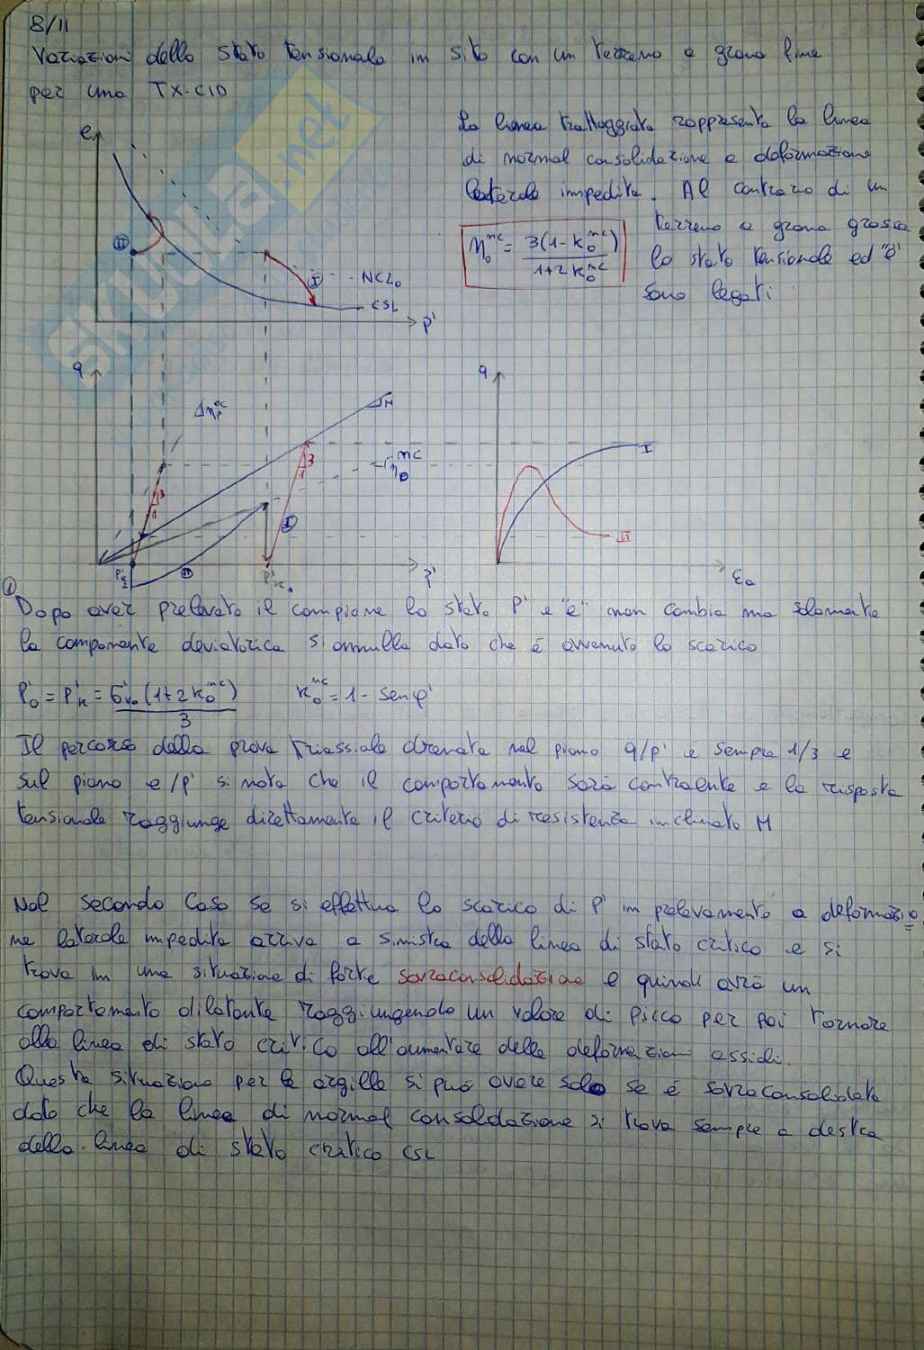 8/11
Variazioni dello stato tensionale in sito con un terreno a grana fine
per una TX-CID
La linea tratteggiata rappresenta la linea
di normal consolidazione a deformazione
laterale impedita. Al contrario di un
terreno a grana grossa
lo stato tensionale ed "e"
sono legati
η₀ⁿᶜ = 3(1-k₀ⁿᶜ) / 1+2k₀ⁿᶜ
e
II
I
NCL₀
CSL
p'
q
M
η₀ⁿᶜ
3
1
3
1
I
II
p'
q
I
II
εa
①
Dopo aver prelevato il campione lo stato p' e "e" non cambia ma solamente
la componente deviatorica si annulla dato che è avvenuto lo scarico
p'₀ = p'k = σ'v₀ (1+2k₀ⁿᶜ) / 3 k₀ⁿᶜ = 1 - senφ'
Il percorso della prova triassiale drenata nel piano q/p' è sempre 1/3 e
sul piano e/p' si nota che il comportamento sarà contraente e la risposta
tensionale raggiunge direttamente il criterio di resistenza inclinato M
Nel secondo caso se si effettua lo scarico di p' in prelevamento a deformazio
ne laterale impedita arriva a sinistra della linea di stato critico e si
trova in una situazione di forte sovraconsolidazione e quindi avrà un
comportamento dilatante raggiungendo un valore di picco per poi tornare
alla linea di stato critico all'aumentare delle deformazioni assiali.
Questa situazione per le argille si può avere solo se è sovraconsolidata
dato che la linea di normal consolidazione si trova sempre a destra
della linea di stato critico CSL
SKUOLA.net